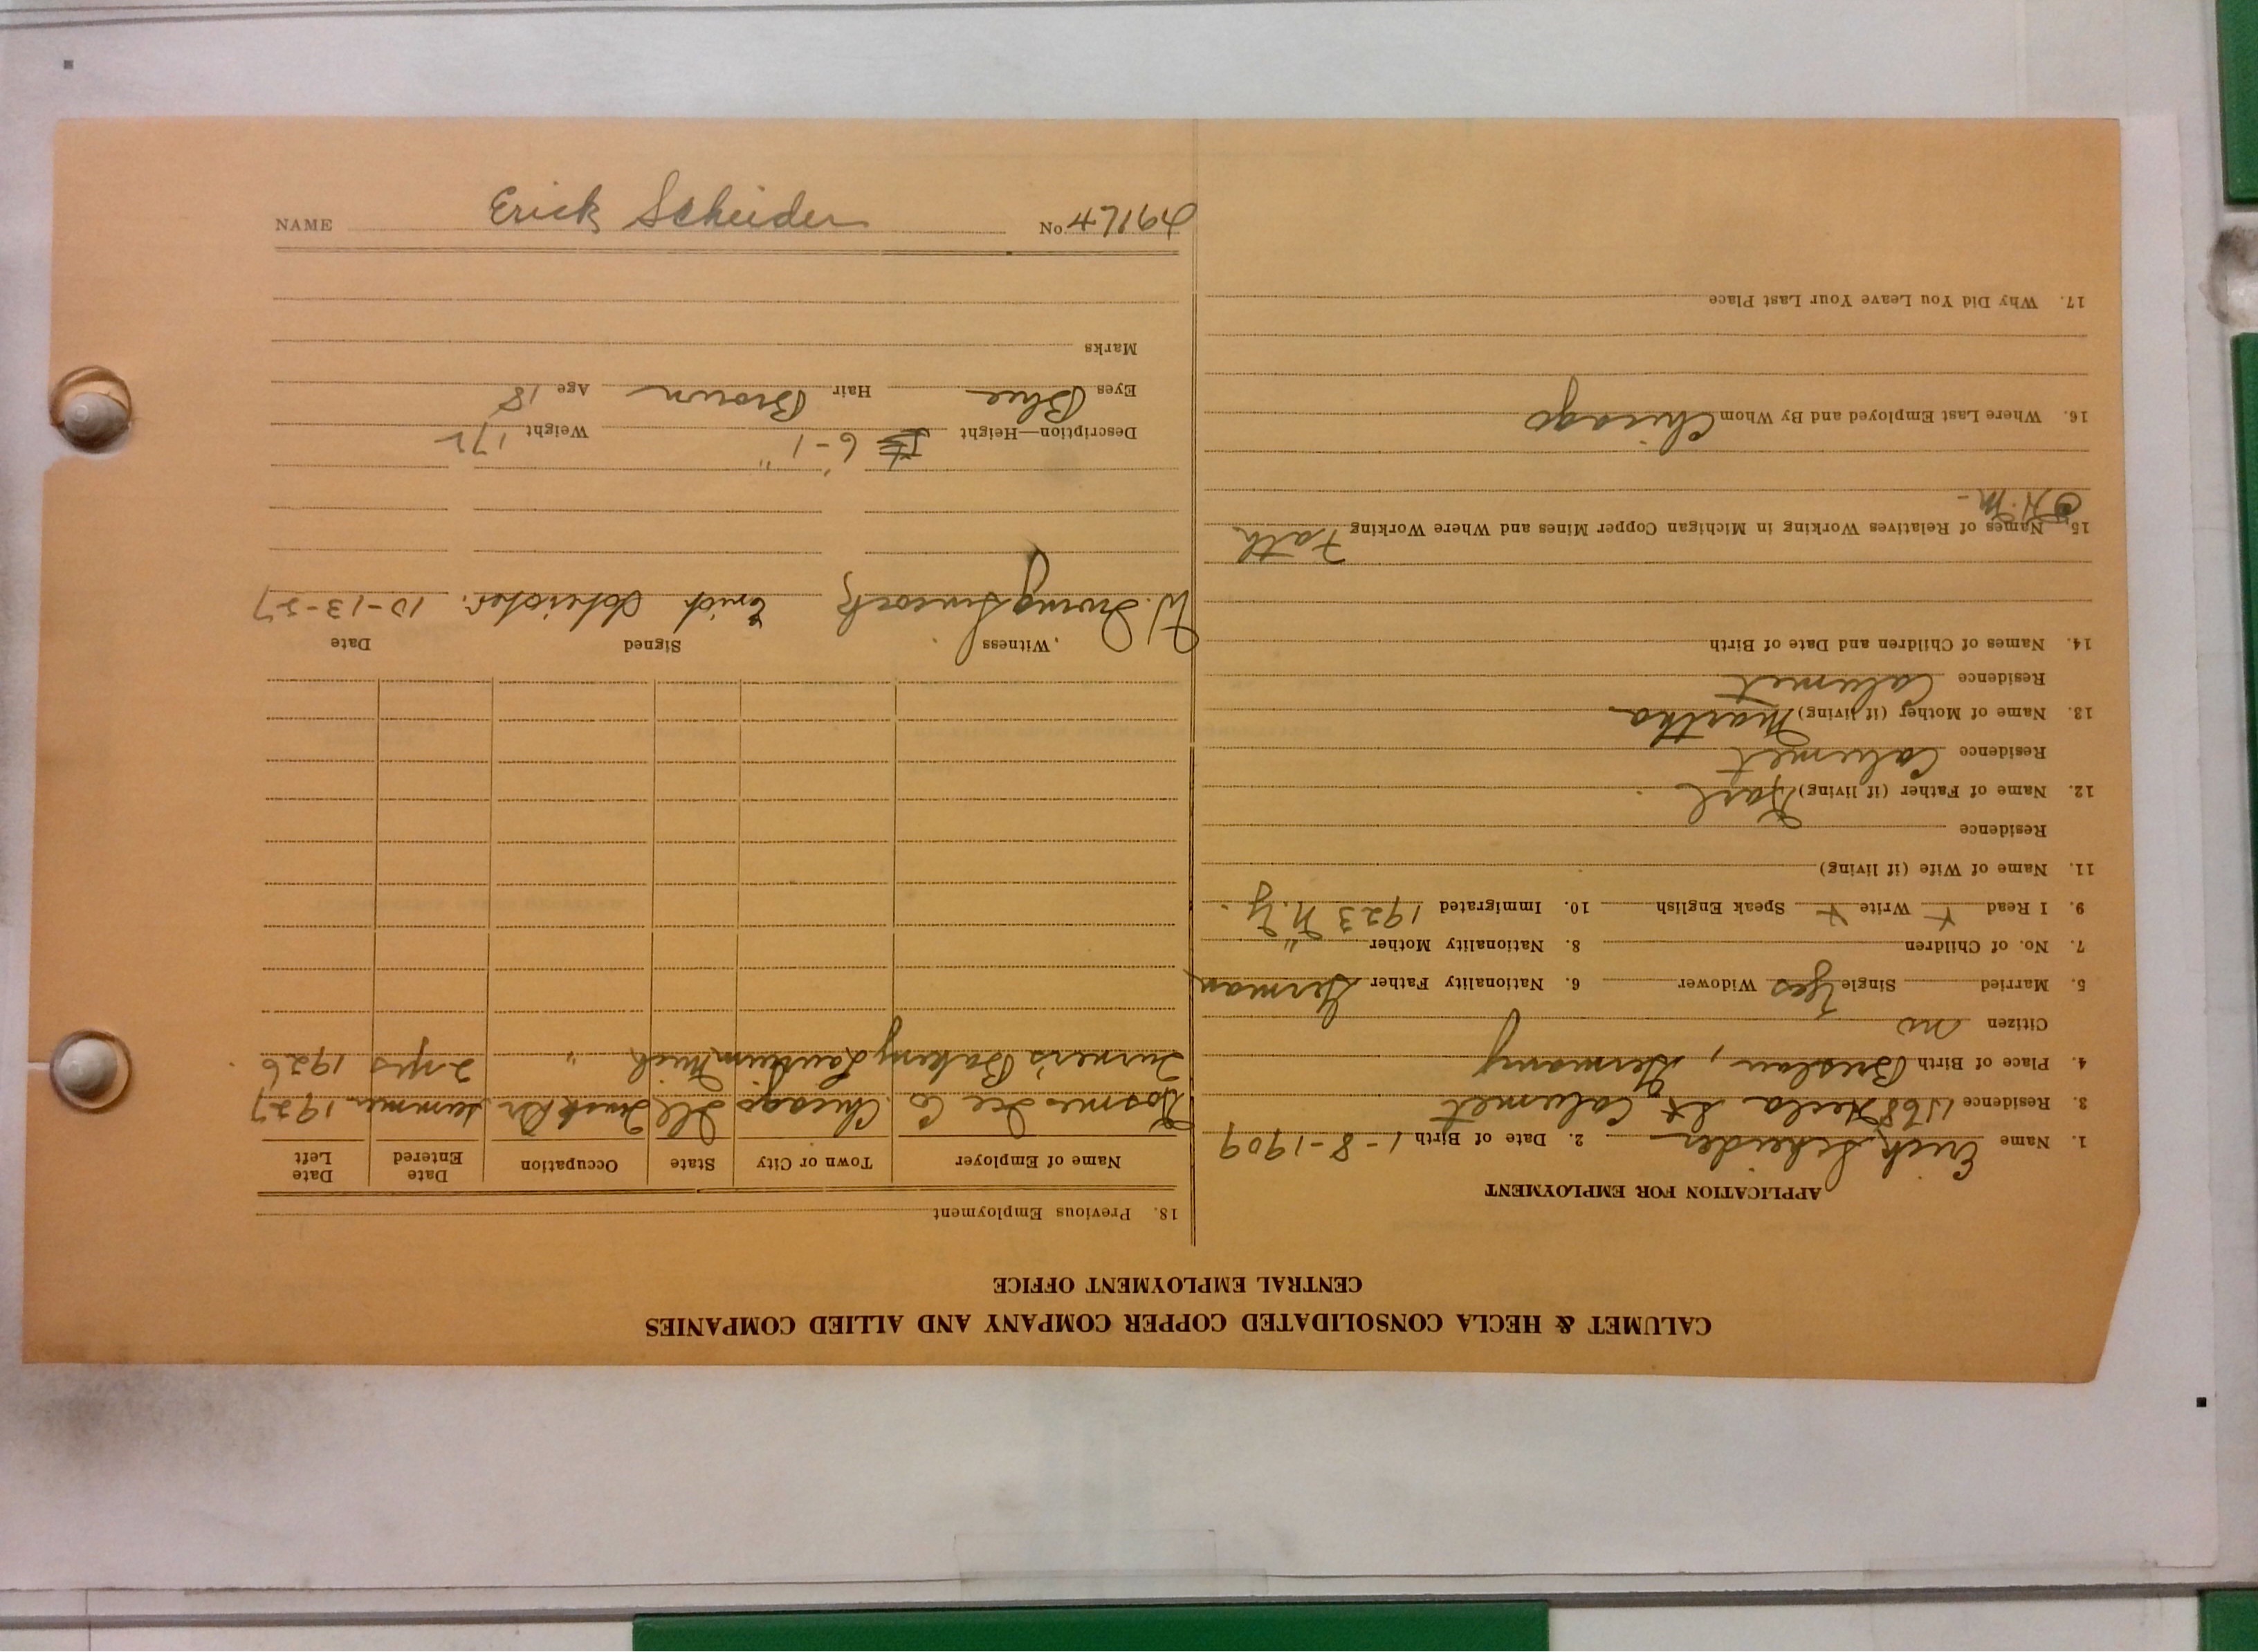 CALUMET & HECLA CONSOLIDATED COPPER COMPANY AND ALLIED COMPANIES
CENTRAL EMPLOYMENT OFFICE
APPLICATION FOR EMPLOYMENT
1. Name Erich Scheider 2. Date of Birth 1-8-1909
3. Residence Hecla St Calumet
4. Place of Birth Breslau, Germany
Citizen no
5. Married Single Yes Widower 6. Nationality Father German
7. No. of Children 8. Nationality Mother "
9. I Read Write Speak English 10. Immigrated 1923 N.Y.
11. Name of Wife (if living)
Residence
12. Name of Father (if living) Karl
Residence Calumet
13. Name of Mother (if living) Martha
Residence Calumet
14. Names of Children and Date of Birth
15. Names of Relatives Working in Michigan Copper Mines and Where Working Fath
16. Where Last Employed and By Whom Chicago
17. Why Did You Leave Your Last Place
18. Previous Employment
Name of Employer Town or City State Occupation Date Entered Date Left
Ice Co. Chicago Ill Truck Dr. summer 1927
Turner's Bakery Laurium Mich " 2 yrs 1926
Witness Signed Date
W. Irving Erich Scheider. 10-13-27
Description—Height 6'-1" Weight 172
Eyes Blue Hair Brown Age 18
Marks
NAME Erick Scheider No.